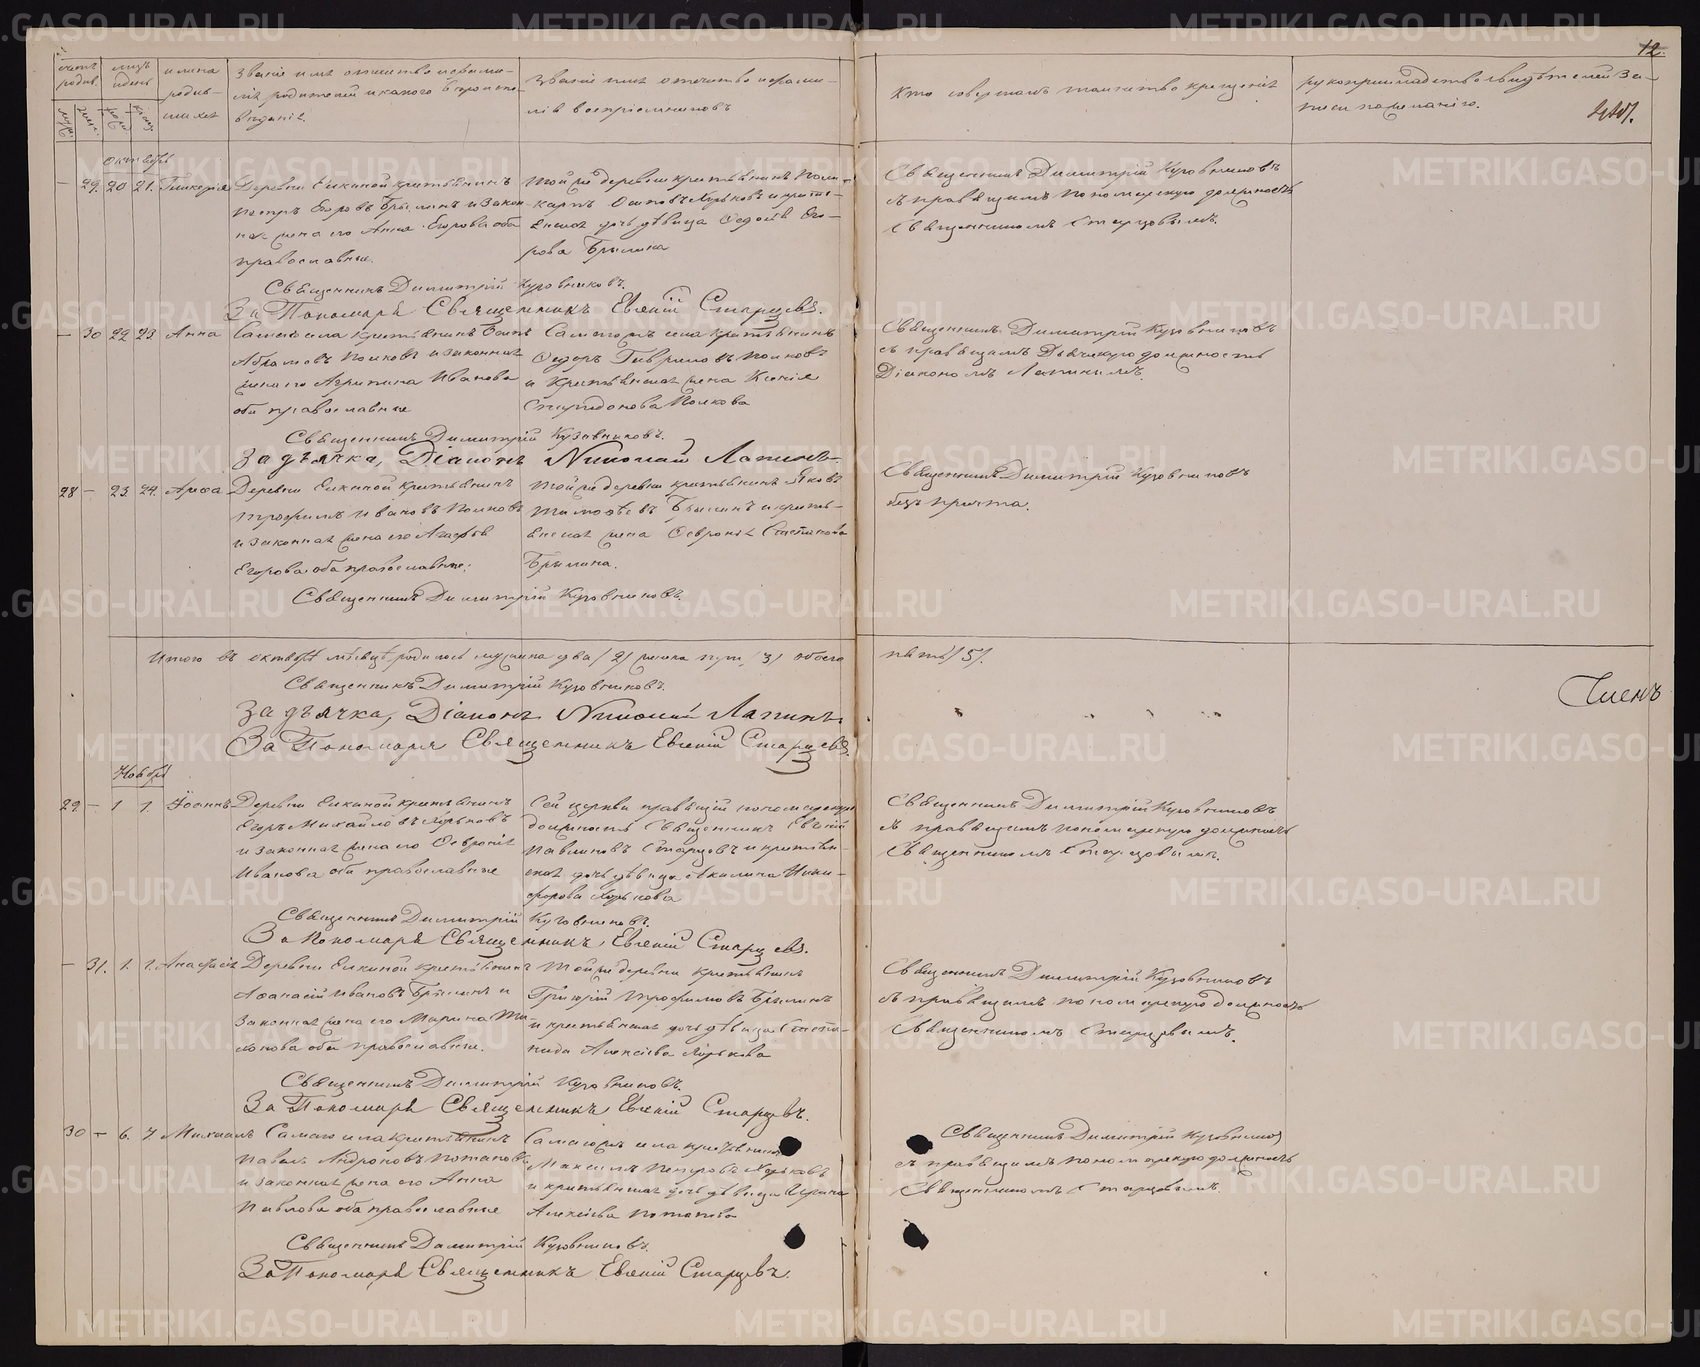 12.
счетъ родив.
муж.
жен.
рожд.
крещ.
имена родив-
шихся
Званіе имя отчество и фами-
лія родителей и какого вѣроиспо-
вѣданія.
Званіе имя отчество и фами-
лія воспріемниковъ
Кто совершалъ таинство крещенія
рукоприкладство свидѣтелей за-
писи по желанію.
Октябрь
— 29. 20 21. Гликерія
Деревни Елкиной крестьянинъ
Петръ Егоровъ Брылинъ и закон-
ная жена его Анна Егорова оба
православные.
Той же деревни крестьянинъ Поли-
карпъ Осиповъ Хорьковъ и кресть-
янская дочь дѣвица Федосья Его-
рова Брылина
Священникъ Димитрій Кузовниковъ
съ правящимъ пономарскую должность
Священникомъ Старцовымъ.
Священникъ Димитрій Кузовниковъ.
За Пономаря Священникъ Евгеній Старцевъ.
— 30 22 23 Анна
Самаго села крестьянинъ
Абрамовъ Полковъ и законная
жена его Агрипина Иванова
оба православные
Самаго жъ села крестьянинъ
Сидоръ Гавриловъ Полковъ
и крестьянская жена Ксенія
Спиридонова Полкова
Священникъ Димитрій Кузовниковъ
съ правящимъ дьячкую должность
Діакономъ Лапинымъ.
Священникъ Димитрій Кузовниковъ.
За дьячка, Діаконъ Николай Лапинъ.
28 — 23 24. Ареѳа
Деревни Елкиной крестьянинъ
Трофимъ Ивановъ Полковъ
и законная жена его Агафья
Егорова оба православные.
Той же деревни крестьянинъ Яковъ
Тимофеевъ Брылинъ и кресть-
янская жена Февронія Степанова
Брылина.
Священникъ Димитрій Кузовниковъ
безъ причта.
Священникъ Димитрій Кузовниковъ.
Итого въ октябрѣ мѣсяцѣ родилось мужеска два /2/ женска три /3/ обоего
пять /5/.
Священникъ Димитрій Кузовниковъ.
За дьячка, Діаконъ Николай Лапинъ.
За Пономаря Священникъ Евгеній Старцевъ.
Членъ
Ноябрь
29 — 1 1. Іоаннъ
Деревни Елкиной крестьянинъ
Егоръ Михайловъ Хорьковъ
и законная жена его Февронія
Иванова оба православные
Сей церкви правящій пономарскую
должность Священникъ Евгеній
Павлиновъ Старцовъ и крестьян-
ская дочь дѣвица Акилина Ники-
форова Хорькова
Священникъ Димитрій Кузовниковъ
съ правящимъ пономарскую должность
Священникомъ Старцовымъ.
Священникъ Димитрій Кузовниковъ.
За Пономаря Священникъ Евгеній Старцевъ.
— 31. 1. 1. Анастасія
Деревни Елкиной крестьянинъ
Афанасій Ивановъ Брылинъ и
законная жена его Марина
оба православные.
Той же деревни крестьянинъ
Григорій Трофимовъ Брылинъ
и крестьянская дочь дѣвица Степа-
нида Алексіева Хорькова
Священникъ Димитрій Кузовниковъ
съ правящимъ пономарскую должность
Священникомъ Старцевымъ.
Священникъ Димитрій Кузовниковъ.
За Пономаря Священникъ Евгеній Старцевъ.
30 — 6. 7 Михаилъ
Самаго села крестьянинъ
Павелъ Андроновъ Потаповъ
и законная жена его Анна
Павлова оба православные
Самаго жъ села крестьянинъ
Максимъ Петровъ Хорьковъ
и крестьянская дочь дѣвица Ирина
Алексіева Потапова
Священникъ Димитрій Кузовниковъ
съ правящимъ пономарскую должность
Священникомъ Старцевымъ.
Священникъ Димитрій Кузовниковъ.
За Пономаря Священникъ Евгеній Старцевъ.
METRIKI.GASO-URAL.RU